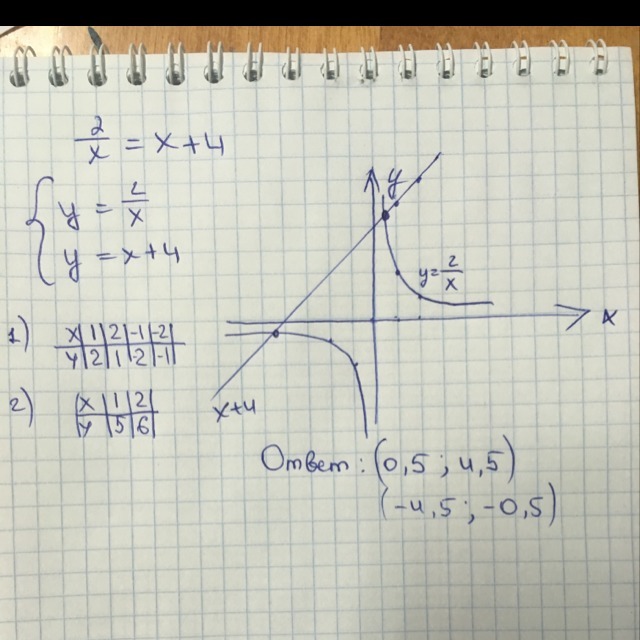 2/x = x+4
{ y = 2/x
y = x+4
1) x | 1 | 2 | -1 | -2 |
y | 2 | 1 | -2 | -1 |
2) | x | 1 | 2 |
| y | 5 | 6 |
y
y = 2/x
x
x+4
Ответ: (0,5 ; 4,5)
(-4,5 ; -0,5)